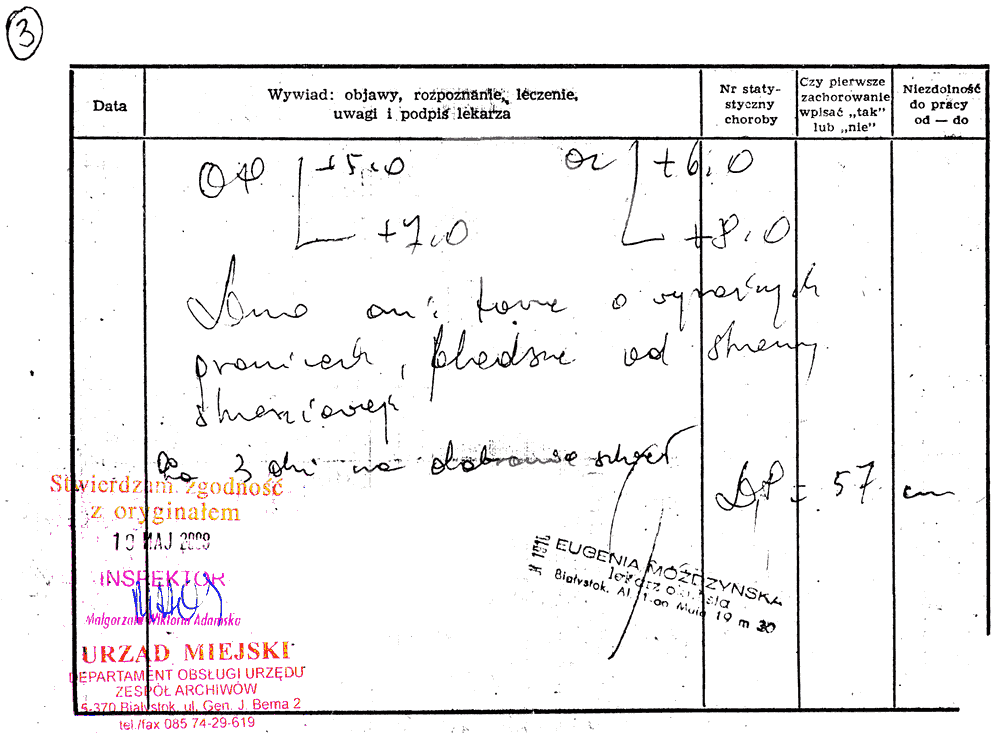 3
Data
Wywiad: objawy, rozpoznanie, leczenie,
uwagi i podpis lekarza
Nr staty-
styczny
choroby
Czy pierwsze
zachorowanie
wpisać „tak"
lub „nie"
Niezdolność
do pracy
od — do
+5,0 +6,0
+7,0 +8,0
o wyraźnych
granicach, bledsze od strony
skroniowej
3 dni na
DP = 57 cm
Stwierdzam zgodność
z oryginałem
19 MAJ 2009
INSPEKTOR
Małgorzata Wiktoria Adamska
URZĄD MIEJSKI
DEPARTAMENT OBSŁUGI URZĘDU
ZESPÓŁ ARCHIWÓW
5-370 Białystok, ul. Gen. J. Bema 2
tel./fax 085 74-29-619
EUGENIA MOŹDZYŃSKA
lekarz okulista
Białystok, Al. 1-go Maja 19 m 30